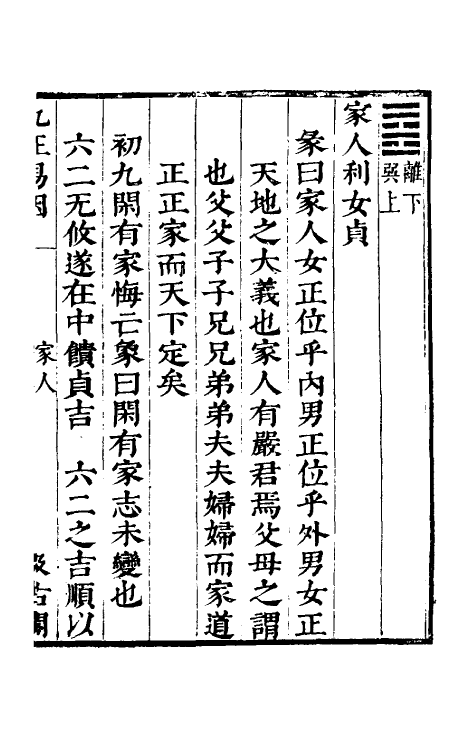 離下
巽上
家人利女貞
彖曰家人女正位乎內男正位乎外男女正
天地之大義也家人有嚴君焉父母之謂
也父父子子兄兄弟弟夫夫婦婦而家道
正正家而天下定矣
初九閑有家悔亡象曰閑有家志未變也
六二无攸遂在中饋貞吉 六二之吉順以
九正易因
家人
汲古閣